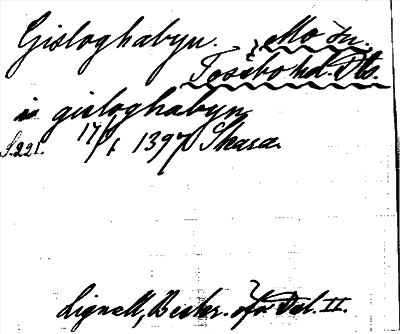 Gisloghabyn. Mo sn.
Tössbo hd. Dls.
in gisloghabyn
S. 221. 17/1 1397 Skara.
Lignell, Beskr. öfv. Dal. II.